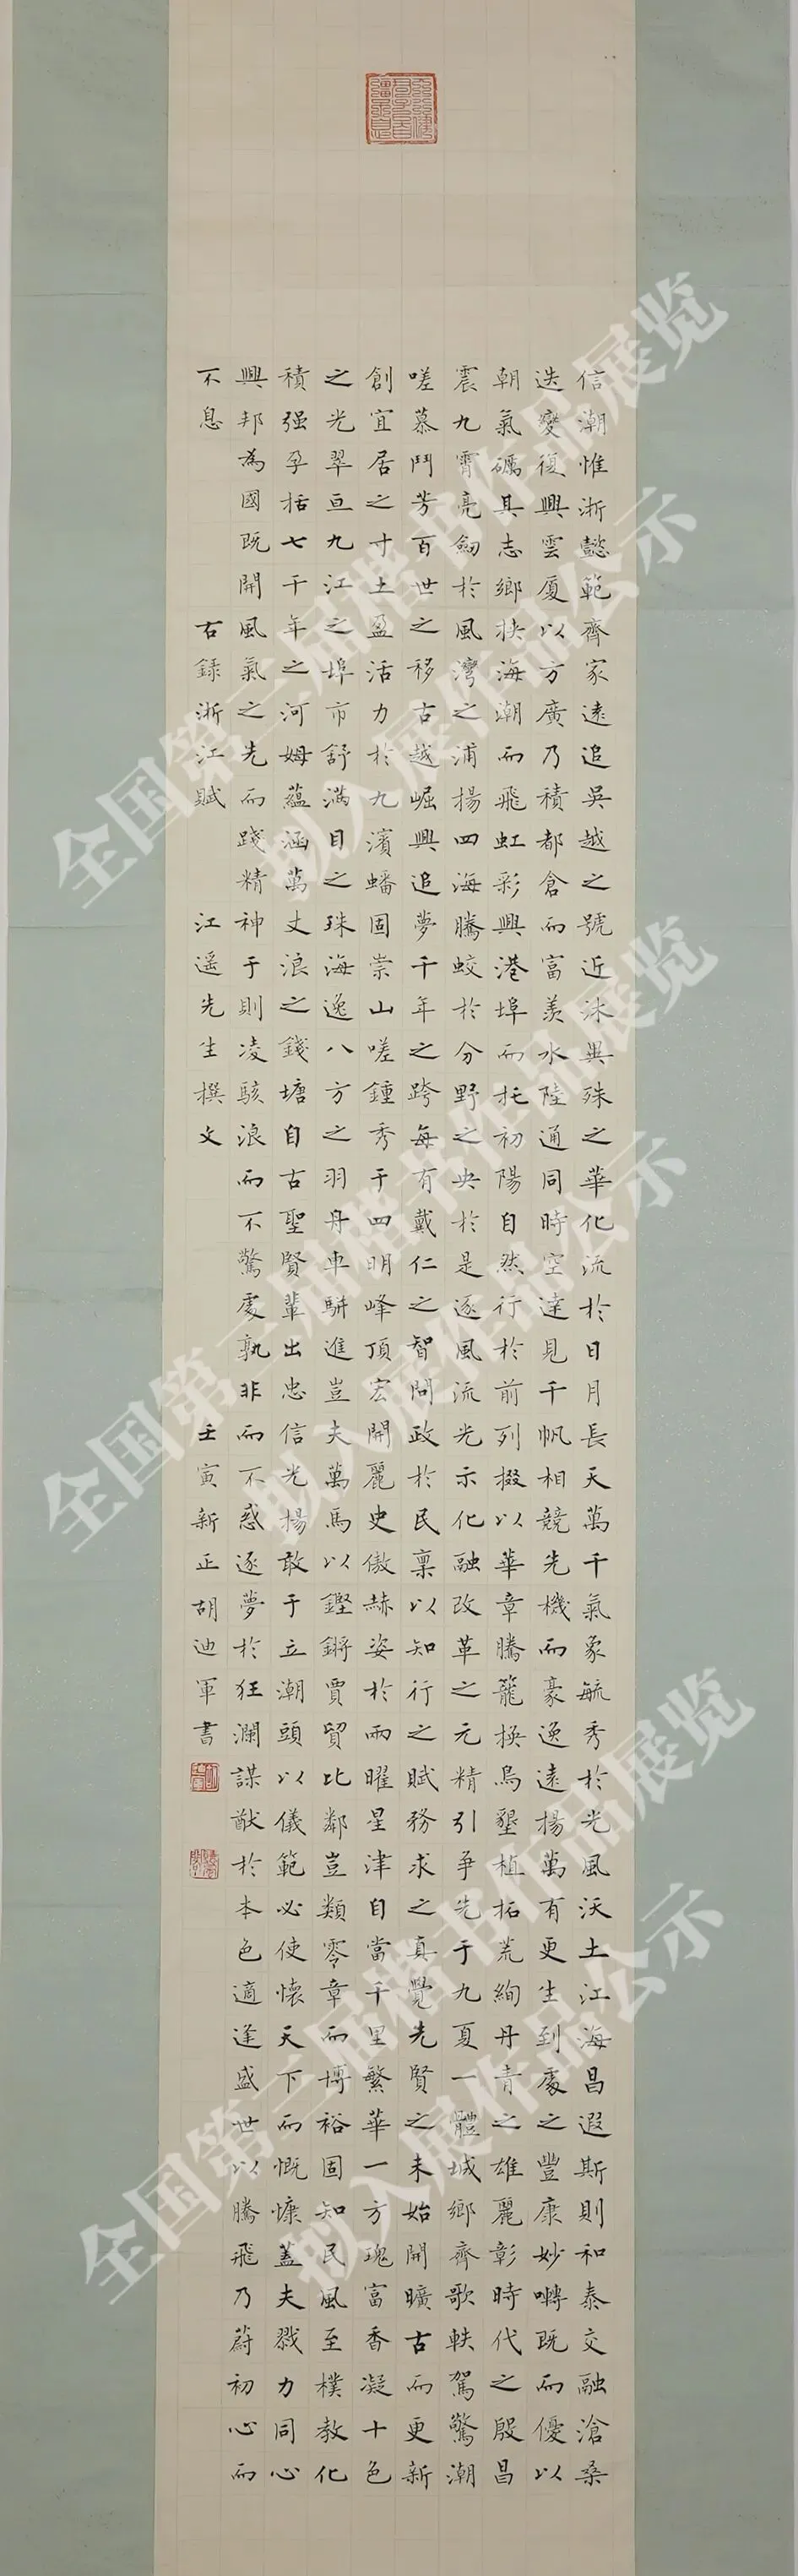 信潮惟浙懿範齊家遠追吳越之號近沐與殊之華化流於日月長天萬千氣象毓秀於光風沃土江海昌遐斯則和泰交融滄桑
迭變復興雲廈以方廣乃積都倉而富羨水陸通同時空達見千帆相競先機而豪逸遠揚萬有更生到處之豐康妙囀既而優以
朝氣礪其志鄉挾海潮而飛虹彩興港埠而托初陽自然行於前列掇以華章騰籠換鳥墾植拓荒絢丹青之雄麗彰時代之殷昌
震九霄亮劒於風灣之浦揚四海騰蛟於分野之央於是逐風流光示化融改革之元精引爭先于九夏一體城鄉齊歌軼駕驚潮
嗟慕鬥芳百世之移古越崛興追夢千年之跨每有戴仁之智問政於民稟以知行之賦務求之真覺先賢之未始開曠古而更新
創宜居之寸土盈活力於九濱蟠固崇山嗟鍾秀于四明峰頂宏開麗史傲赫姿於兩曜星津自當千里繁華一方瑰富香凝十色
之光翠亘九江之埠市舒滿目之珠海逸八方之羽舟車駢進豈夫萬馬以鏗鏘賈貿比鄰豈類零章而博裕固知民風至樸教化
積强孕括七千年之河姆蘊涵萬丈浪之錢塘自古聖賢輩出忠信光揚敢于立潮頭以儀範必使懷天下而慨慷蓋夫戮力同心
興邦為國既開風氣之先而踐精神于則凌駭浪而不驚處孰非而不惑逐夢於狂瀾謀猷於本色適逢盛世以騰飛乃蔚初心而
不息 右録浙江賦 江遥先生撰文 壬寅新正胡迪軍書
全国第三届楷书作品展览
拟入展作品公示
全国第三届楷书作品展览
拟入展作品公示
全国第三届楷书作品展览
拟入展作品公示